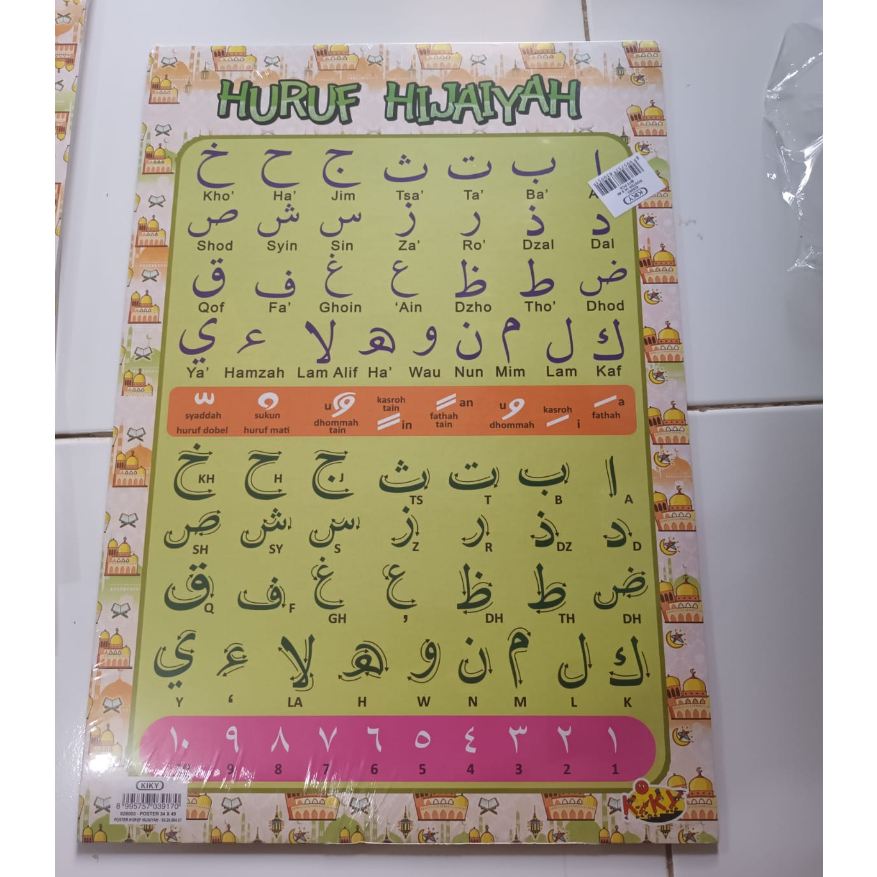 HURUF HIJAIYAH
ا ب ت ث ج ح خ
Kho' Ha' Jim Tsa' Ta' Ba'
د ذ ر ز س ش ص
Shod Syin Sin Za' Ro' Dzal Dal
ض ط ظ ع غ ف ق
Qof Fa' Ghoin 'Ain Dzho Tho' Dhod
ك ل م ن و ه لا ء ي
Ya' Hamzah Lam Alif Ha' Wau Nun Mim Lam Kaf
syaddah
huruf dobel
sukun
huruf mati
u
dhommah
tain
kasroh
tain
in
an
fathah
tain
u
dhommah
kasroh
i
a
fathah
ا ب ت ث ج ح خ
KH H J TS T B A
د ذ ر ز س ش ص
SH SY S Z R DZ D
ض ط ظ ع غ ف ق
Q F GH ' DH TH DH
ك ل م ن و ه لا ء ي
Y ‘ LA H W N M L K
١ ٢ ٣ ٤ ٥ ٦ ٧ ٨ ٩ ١٠
9 8 7 6 5 4 3 2 1
KIKY
8 995757 039170
KIKY